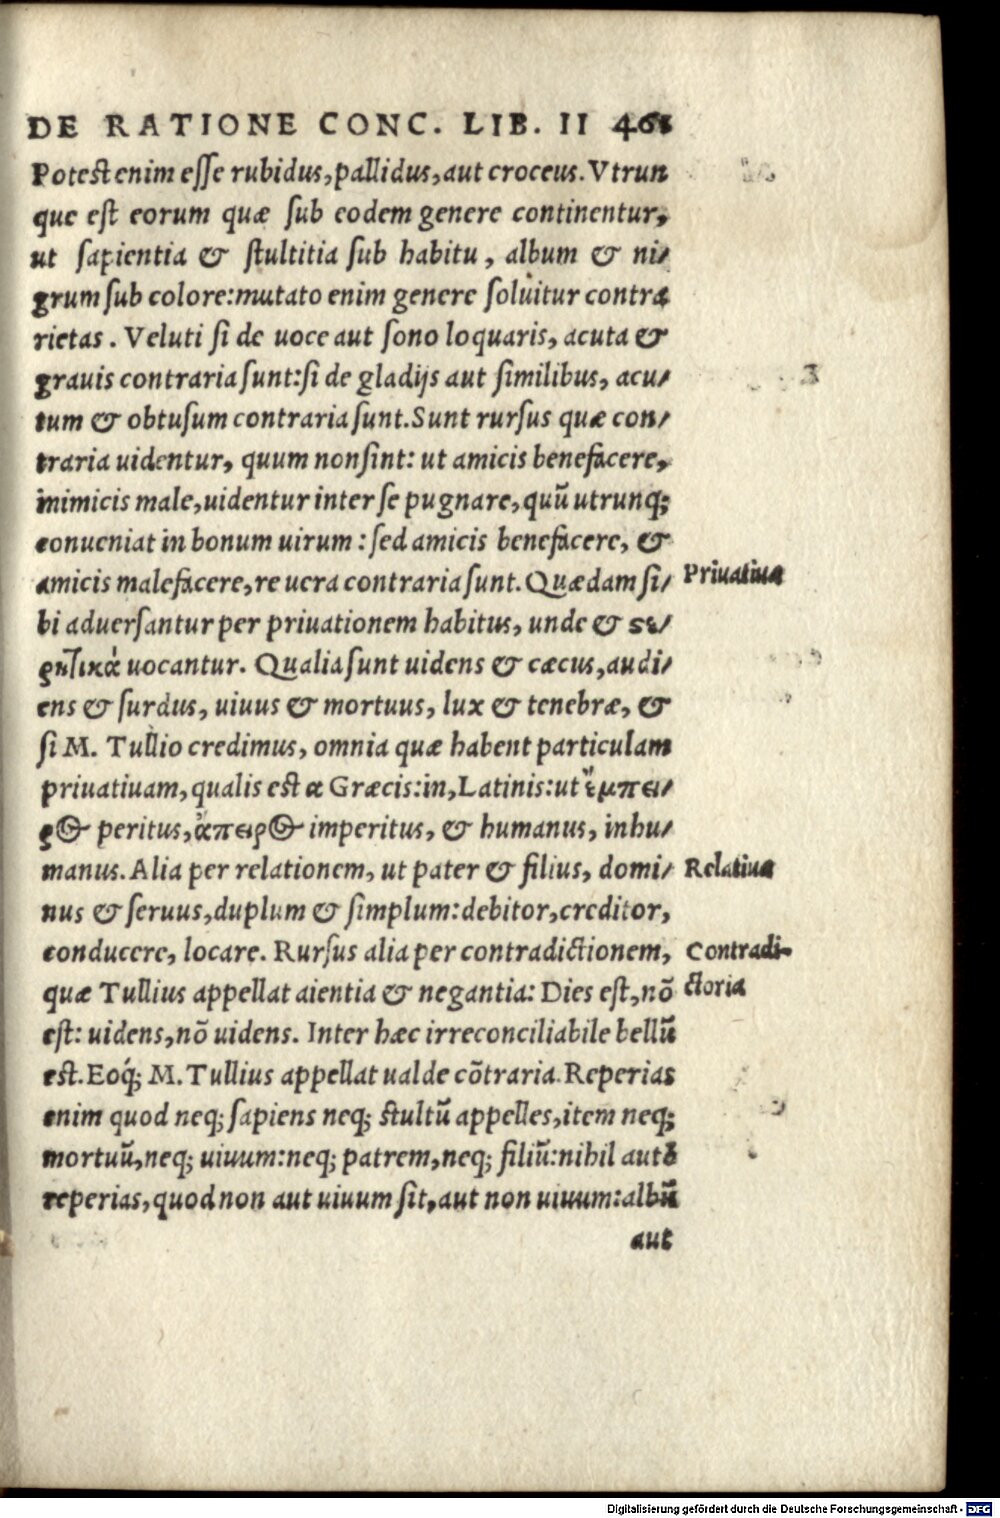 DE RATIONE CONC. LIB. II 461
Potest enim esse rubidus, pallidus, aut croceus. Vtrun
que est eorum quæ sub eodem genere continentur,
ut sapientia & stultitia sub habitu, album & ni/
grum sub colore: mutato enim genere soluitur contra
rietas. Veluti si de uoce aut sono loquaris, acuta &
grauis contraria sunt: si de gladijs aut similibus, acu/
tum & obtusum contraria sunt. Sunt rursus quæ con/
traria uidentur, quum non sint: ut amicis benefacere,
inimicis male, uidentur inter se pugnare, quũ utrunq;
conueniat in bonum uirum: sed amicis benefacere, &
amicis malefacere, re uera contraria sunt. Quædam si/
Priuatiua
bi aduersantur per priuationem habitus, unde & στε/
ρητικὰ uocantur. Qualia sunt uidens & cæcus, audi/
ens & surdus, uiuus & mortuus, lux & tenebræ, &
si M. Tullio credimus, omnia quæ habent particulam
priuatiuam, qualis est α Græcis: in, Latinis: ut ἔμπει/
ρος peritus, ἄπειρος imperitus, & humanus, inhu/
manus. Alia per relationem, ut pater & filius, domi/
Relatiua
nus & seruus, duplum & simplum: debitor, creditor,
conducere, locare. Rursus alia per contradictionem,
Contradi-
quæ Tullius appellat aientia & negantia: Dies est, nõ
ctoria
est: uidens, nõ uidens. Inter hæc irreconciliabile bellũ
est. Eoq́; M. Tullius appellat ualde cõtraria. Reperias
enim quod neq; sapiens neq; stultũ appelles, item neq;
mortuũ, neq; uiuum: neq; patrem, neq; filiũ: nihil autẽ
reperias, quod non aut uiuum sit, aut non uiuum: albũ
aut
Digitalisierung gefördert durch die Deutsche Forschungsgemeinschaft - DFG